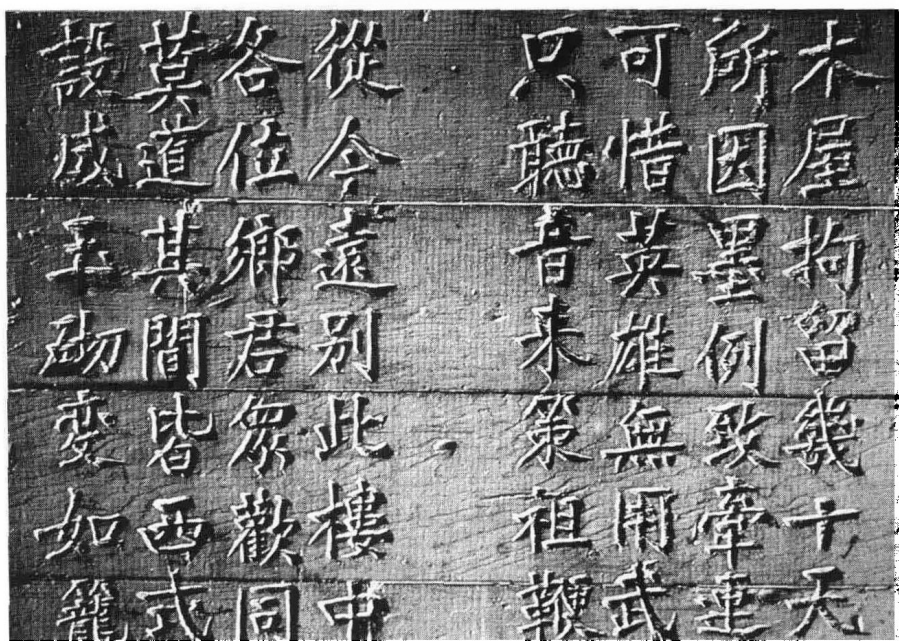 木屋拘留幾十天
所因墨例致牽連
可惜英雄無用武
只聽音來策祖鞭
從今遠別此樓中
各位鄉君眾歡同
莫道其間皆西式
設成玉砌變如籠